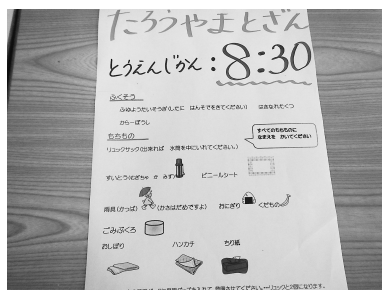 たろうやまとざん
とうえんじかん：8:30
ふくそう
ふゆようたいそうぎ（したに はんそでをきてください） はきなれたくつ
からーぼうし
もちもの
すべてのもちものに
なまえを かいてください
リュックサック（出来れば 水筒を中にいれてください。）
すいとう（むぎちゃ か みず） ビニールシート
雨具（かっぱ） （かさはだめですよ） おにぎり くだもの
ごみぶくろ
おしぼり ハンカチ ちり紙